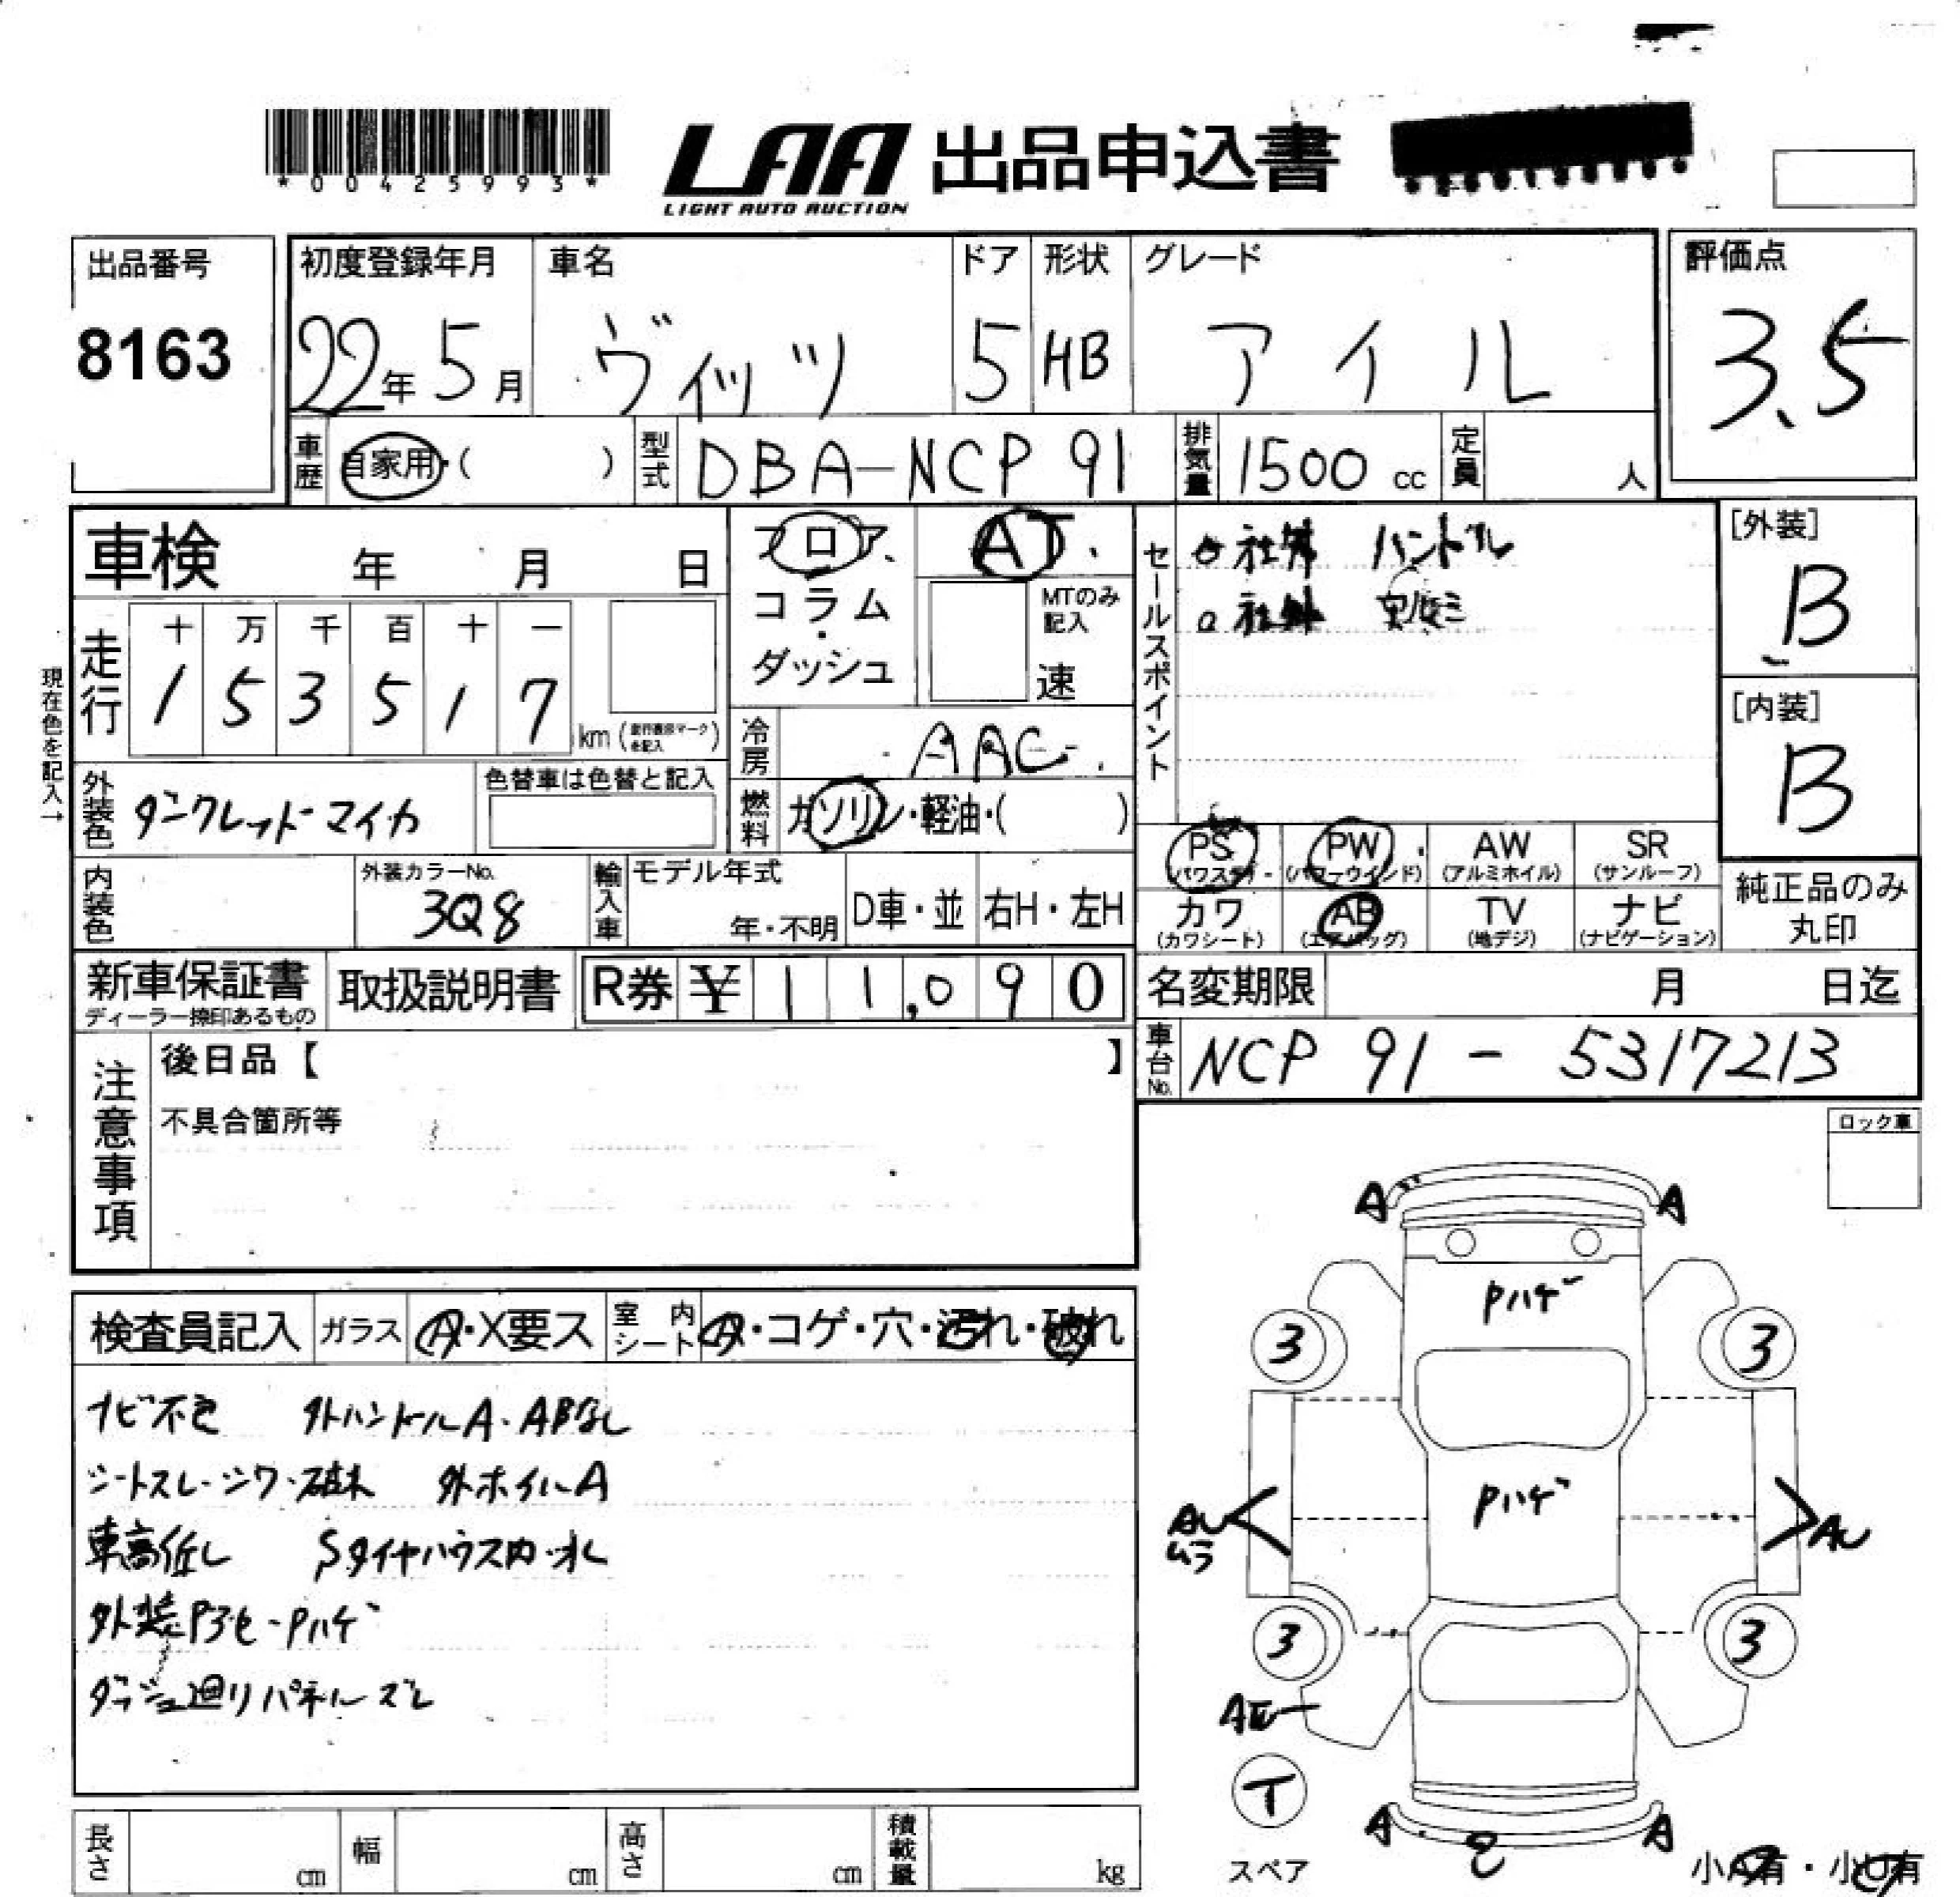 *00425993*
LAA 出品申込書
LIGHT AUTO AUCTION
出品番号
8163
初度登録年月
22年5月
車名
ヴィッツ
ドア
5
形状
HB
グレード
アイル
評価点
3.5
車歴
自家用・( )
型式
DBA-NCP 91
排気量
1500 cc
定員
人
車検 年 月 日
フロア
コラム
・
ダッシュ
AT
MTのみ
記入
速
セールスポイント
社外 ハンドル
社外
[外装]
B
[内装]
B
現在色を記入→
走行
十 万 千 百 十 一
1 5 3 5 1 7
km
冷房
AAC
外装色
ダークレッドマイカ
色替車は色替と記入
燃料
ガソリン・軽油・( )
PS
(パワステ)
PW
(パワーウインド)
AW
(アルミホイル)
SR
(サンルーフ)
カワ
(カワシート)
AB
(エアバッグ)
TV
(地デジ)
ナビ
(ナビゲーション)
純正品のみ
丸印
内装色
外装カラーNo.
3Q8
輸入車
モデル年式
年・不明
D車・並
右H・左H
新車保証書
ディーラー捺印あるもの
取扱説明書
R券 ¥ 11,090
名変期限 月 日迄
車台No.
NCP 91 - 5317213
注意事項
後日品【 】
不具合箇所等
ロック車
検査員記入
ガラス
A・X要ス
室内
シート
A・コゲ・穴・汚れ・破れ
ナビ不良 外ハンドルA・ABなし
シートスレ・シワ・破れ 外ホイルA
車高低し
外装P ハゲ
ダッシュ廻りパネルズレ
A A
Pハゲ
3 3
Pハゲ
AU
ムラ
AU
3 3
T
スペア
A A
小A有・小U有
長さ cm
幅 cm
高さ cm
積載量 kg